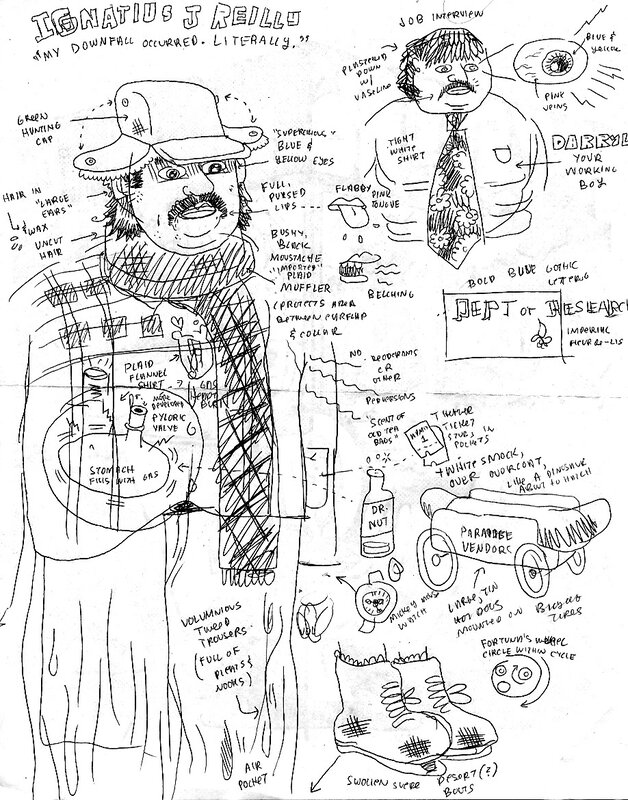 IGNATIUS J REILLY
"MY DOWNFALL OCCURRED. LITERALLY."
GREEN
HUNTING
CAP
HAIR IN
"LARGE
EARS"
& WAX
UNCUT
HAIR
"SUPERCILIOUS"
BLUE &
YELLOW EYES
FULL,
PURSED
LIPS
BUSHY,
BLACK
MOUSTACHE
"IMPORTED"
PLAID
MUFFLER
(PROTECTS AREA
BETWEEN EARFLAP
& COLLAR
PLAID
FLANNEL
SHIRT
GAS
HEART
BURN
MORE
DEVELOPED
PYLORIC
VALVE
STOMACH
FILLS WITH GAS
VOLUMINOUS
TWEED
TROUSERS
(FULL OF
PLEATS &
NOOKS)
AIR
POCKET
JOB INTERVIEW
PLASTERED
DOWN
W/
VASELINE
BLUE &
YELLOW
PINK
VEINS
TIGHT
WHITE
SHIRT
DARRYL
YOUR
WORKING
BOY
FLABBY
PINK
TONGUE
BELCHING
BOLD BLUE GOTHIC
LETTERING
DEPT OF RESEARCH
IMPERIAL
FLEUR-DE-LIS
NO
DEODORANTS
OR
OTHER
"SCENT OF
OLD TEA
BAGS"
THEATER
TICKET
STUBS IN
POCKETS
1
DR.
NUT
+ WHITE SMOCK,
OVER OVERCOAT,
LIKE A DINOSAUR
ABOUT TO HATCH
PARADISE
VENDORS
LARGE, TIN
HOT DOGS
MOUNTED ON BICYCLE
TIRES
MICKEY MOUSE
WATCH
FORTUNA'S WHEEL
CIRCLE WITHIN CYCLE
SWOLLEN SUEDE
DESERT (?)
BOOTS